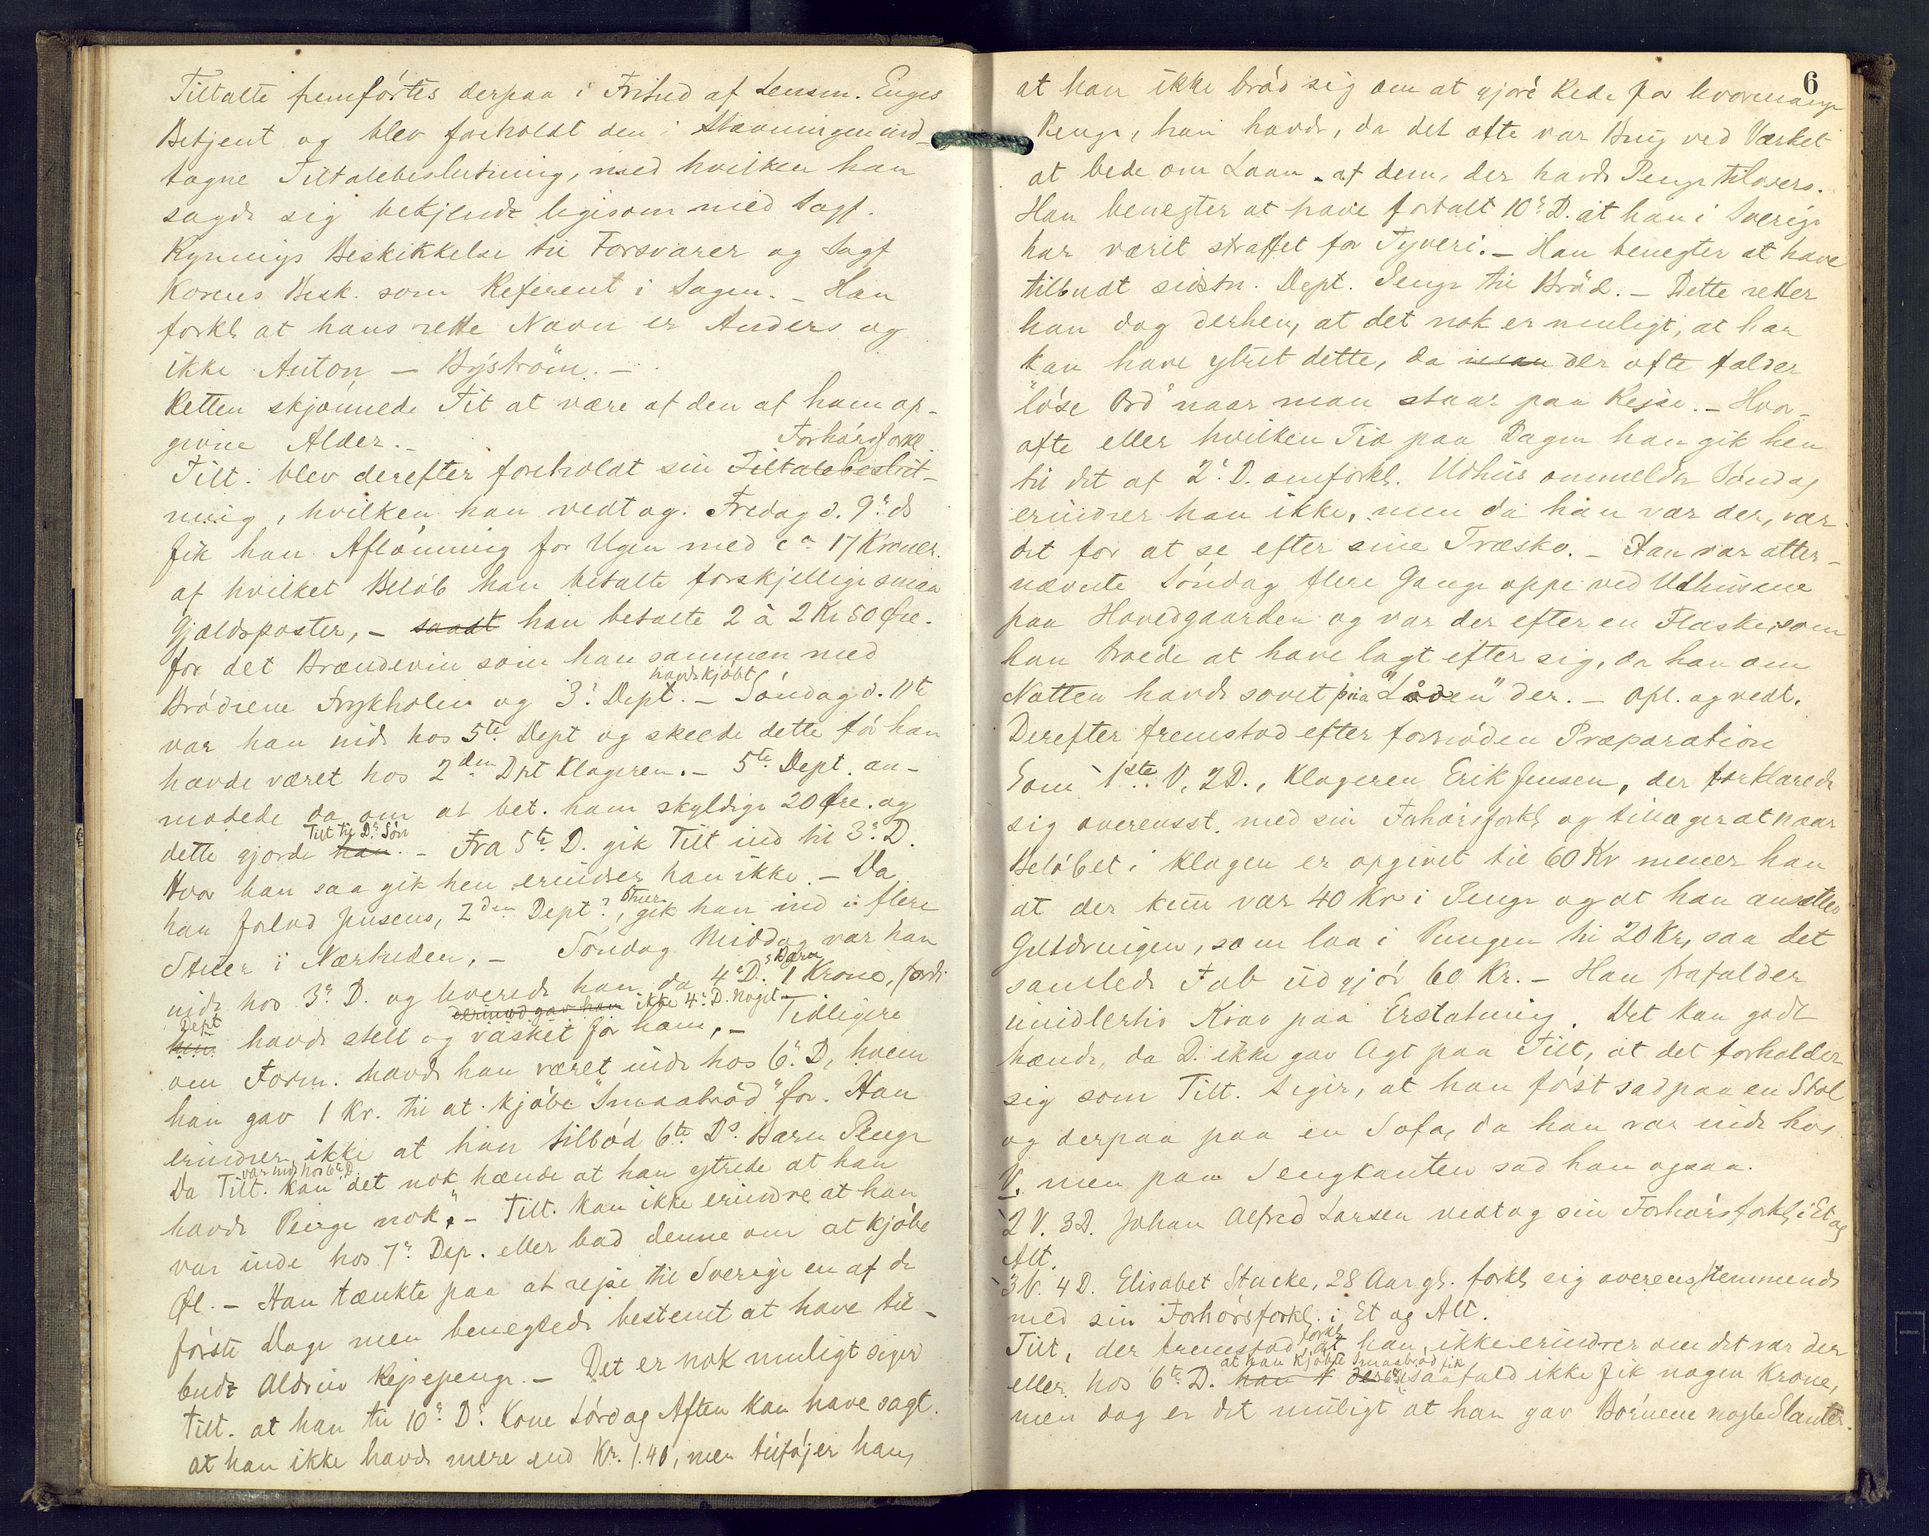 Tiltalte fremførtes derpaa i Frihed af Lensm. Enges
Betjent og blev foreholdt den i Stævningen ind-
tagne Tiltalebeslutning, med hvilken han
sagde sig bekjendt ligesom med Sagf.
Rynnings Beskikkelse til Forsvarer og Sagf
Korens Besk. som Referent i Sagen. – Han
forkl at hans rette Navn er Anders og
ikke Anton – Byström. –
Retten skjønnede Tilt at være af den af ham op-
givne Alder. –
Forhørsforkl.
Tilt. blev derefter foreholdt sin Tiltalebeslut-
ning, hvilken han vedtog. Fredag d. 9' ds
fik han Aflønning for Ugen med ca 17 Kroner.
af hvilket Beløb han betalte forskjellige smaa
Gjældsposter, – saadt han betalte 2 à 2 Kr 50 Øre.
for det Brændevin som han sammen med
havde kjøbt
Brødrene Frykholm og 3' Dept. – Søndag d. 11te
var han inde hos 5te Dept og skeede dette før han
havde været hos 2den Dpt Klageren. – 5te Dept. an-
modede da om at bet. ham skyldige 20 Øre. og
Tilt til D's Søn
dette gjorde han. – Fra 5te D. gik Tilt ind til 3' D.
Hvor han saa gik hen erindrer han ikke. – Da
han forlod Jensens, 2den Depts, Stuer gik han ind i flere
Stuer i Nærheden, – Søndag Middag var han
inde hos 3' D. og leverede han da 4' D.'s Børn 1 Krone, fordi
ikke 4' D. noget –
Dept
hun havde stelt og vasket for ham, – Tidligere
om Form. havde han været inde hos 6' D, hvem
han gav 1 Kr. til at kjøbe "Smaabrød" for. Han
erindrer ikke at han tilbød 6te D's. Børn Penge
var inde hos 6te D.
Da Tilt. kan det nok hænde at han ytrede at han
havde Penge nok". – Tilt. kan ikke erindre at han
var inde hos 7' Dep. eller bad denne om at kjøbe
Øl. – Han tænkte paa at rejse til Sverige en af de
første Dage men benegtede bestemt at have til-
budt Aldrin Rejsepenge. – Det er nok muligt siger
Tilt. at han til 10' D's Kone Lørdag Aften kan have sagt.
at han ikke havde mere end Kr. 1.40, men tilføjer han,
6
at han ikke brød sig om at gjøre Rede for hvormange
Penge, han havde, da det ofte var Brug ved Værket
at bede om Laan af dem, der havde Penge tilovers.
Han benegter at have fortalt 10' D. at han i Sverige
har været straffet for Tyveri. – Han benegter at have
tilbudt sidstn. Dept. Penge til Brød. – Dette retter
han dog derhen, at det nok er muligt, at han
kan have ytret dette, da man der ofte falder
"løse Ord" naar man staar paa Rejse. – Hvor-
ofte eller hvilken Tid paa Dagen han gik hen
til det af 2' D. omforkl. Udhus ommeldte Søndag
erindrer han ikke, men da han var der, var
det for at se efter sine Træsko. – Han var atter-
nævnte Søndag flere Gange oppe ved Udhusene
paa Hovedgaarden og var der efter en Flaske, som
han troede at have lagt efter sig, da han om
Natten havde sovet paa "Låden" der. – Opl. og vedt.
Derefter fremstod efter fornøden Præparation
Som 1ste V. 2 D., Klageren Erik Jensen, der forklarede
sig overensst. med sin Forhørsforkl og tillægger at naar
Beløbet i Klagen er opgivet til 60 Kr mener han
at der kun var 40 Kr i Penge og at han ansætter
Guldringen, som laa i Pungen til 20 Kr, saa det
samlede Tab udgjør 60 Kr. – Han frafalder
imidlertid Krav paa Erstatning. Det kan godt
hænde, da D. ikke gav Agt paa Tilt, at det forholder
sig som Tilt. siger, at han først sad paa en Stol
og derpaa paa en Sofa, da han var inde hos
V. men paa Sengkanten sad han ogsaa.
2 V. 3 D. Johan Alfred Larsen vedtog sin Forhørsforkl i Et og
Alt.
3 V. 4 D. Elisabet Stacke, 28 Aar gl. forkl sig overensstemmende
med sin Forhørsforkl. i Et og Alt.
forkl
Tilt, der fremstod, at han, ikke erindrer om det var der
at han kjøbte Smaabrød fik
eller hos 6te D. han isaafald ikke fik nogen Krone,
men dog er det muligt at han gav Børnene nogle Slanter.